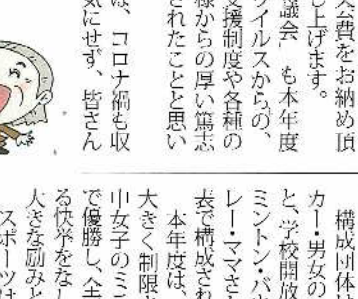 会費をお納め頂
し上げます。
議会 も本年度
イルスからの、
支援制度や各種の
様からの厚い篤志
されたことと思い
は、コロナ禍も収
気にせず、皆さん
構成団体
カー・男女の
と、学校開放
ミントン・バ
レー・ママさ
表で構成され
本年度は、
大きく制限
中女子のミニ
で優勝し、全
る快挙をなし
大きな励みと
スポーツは